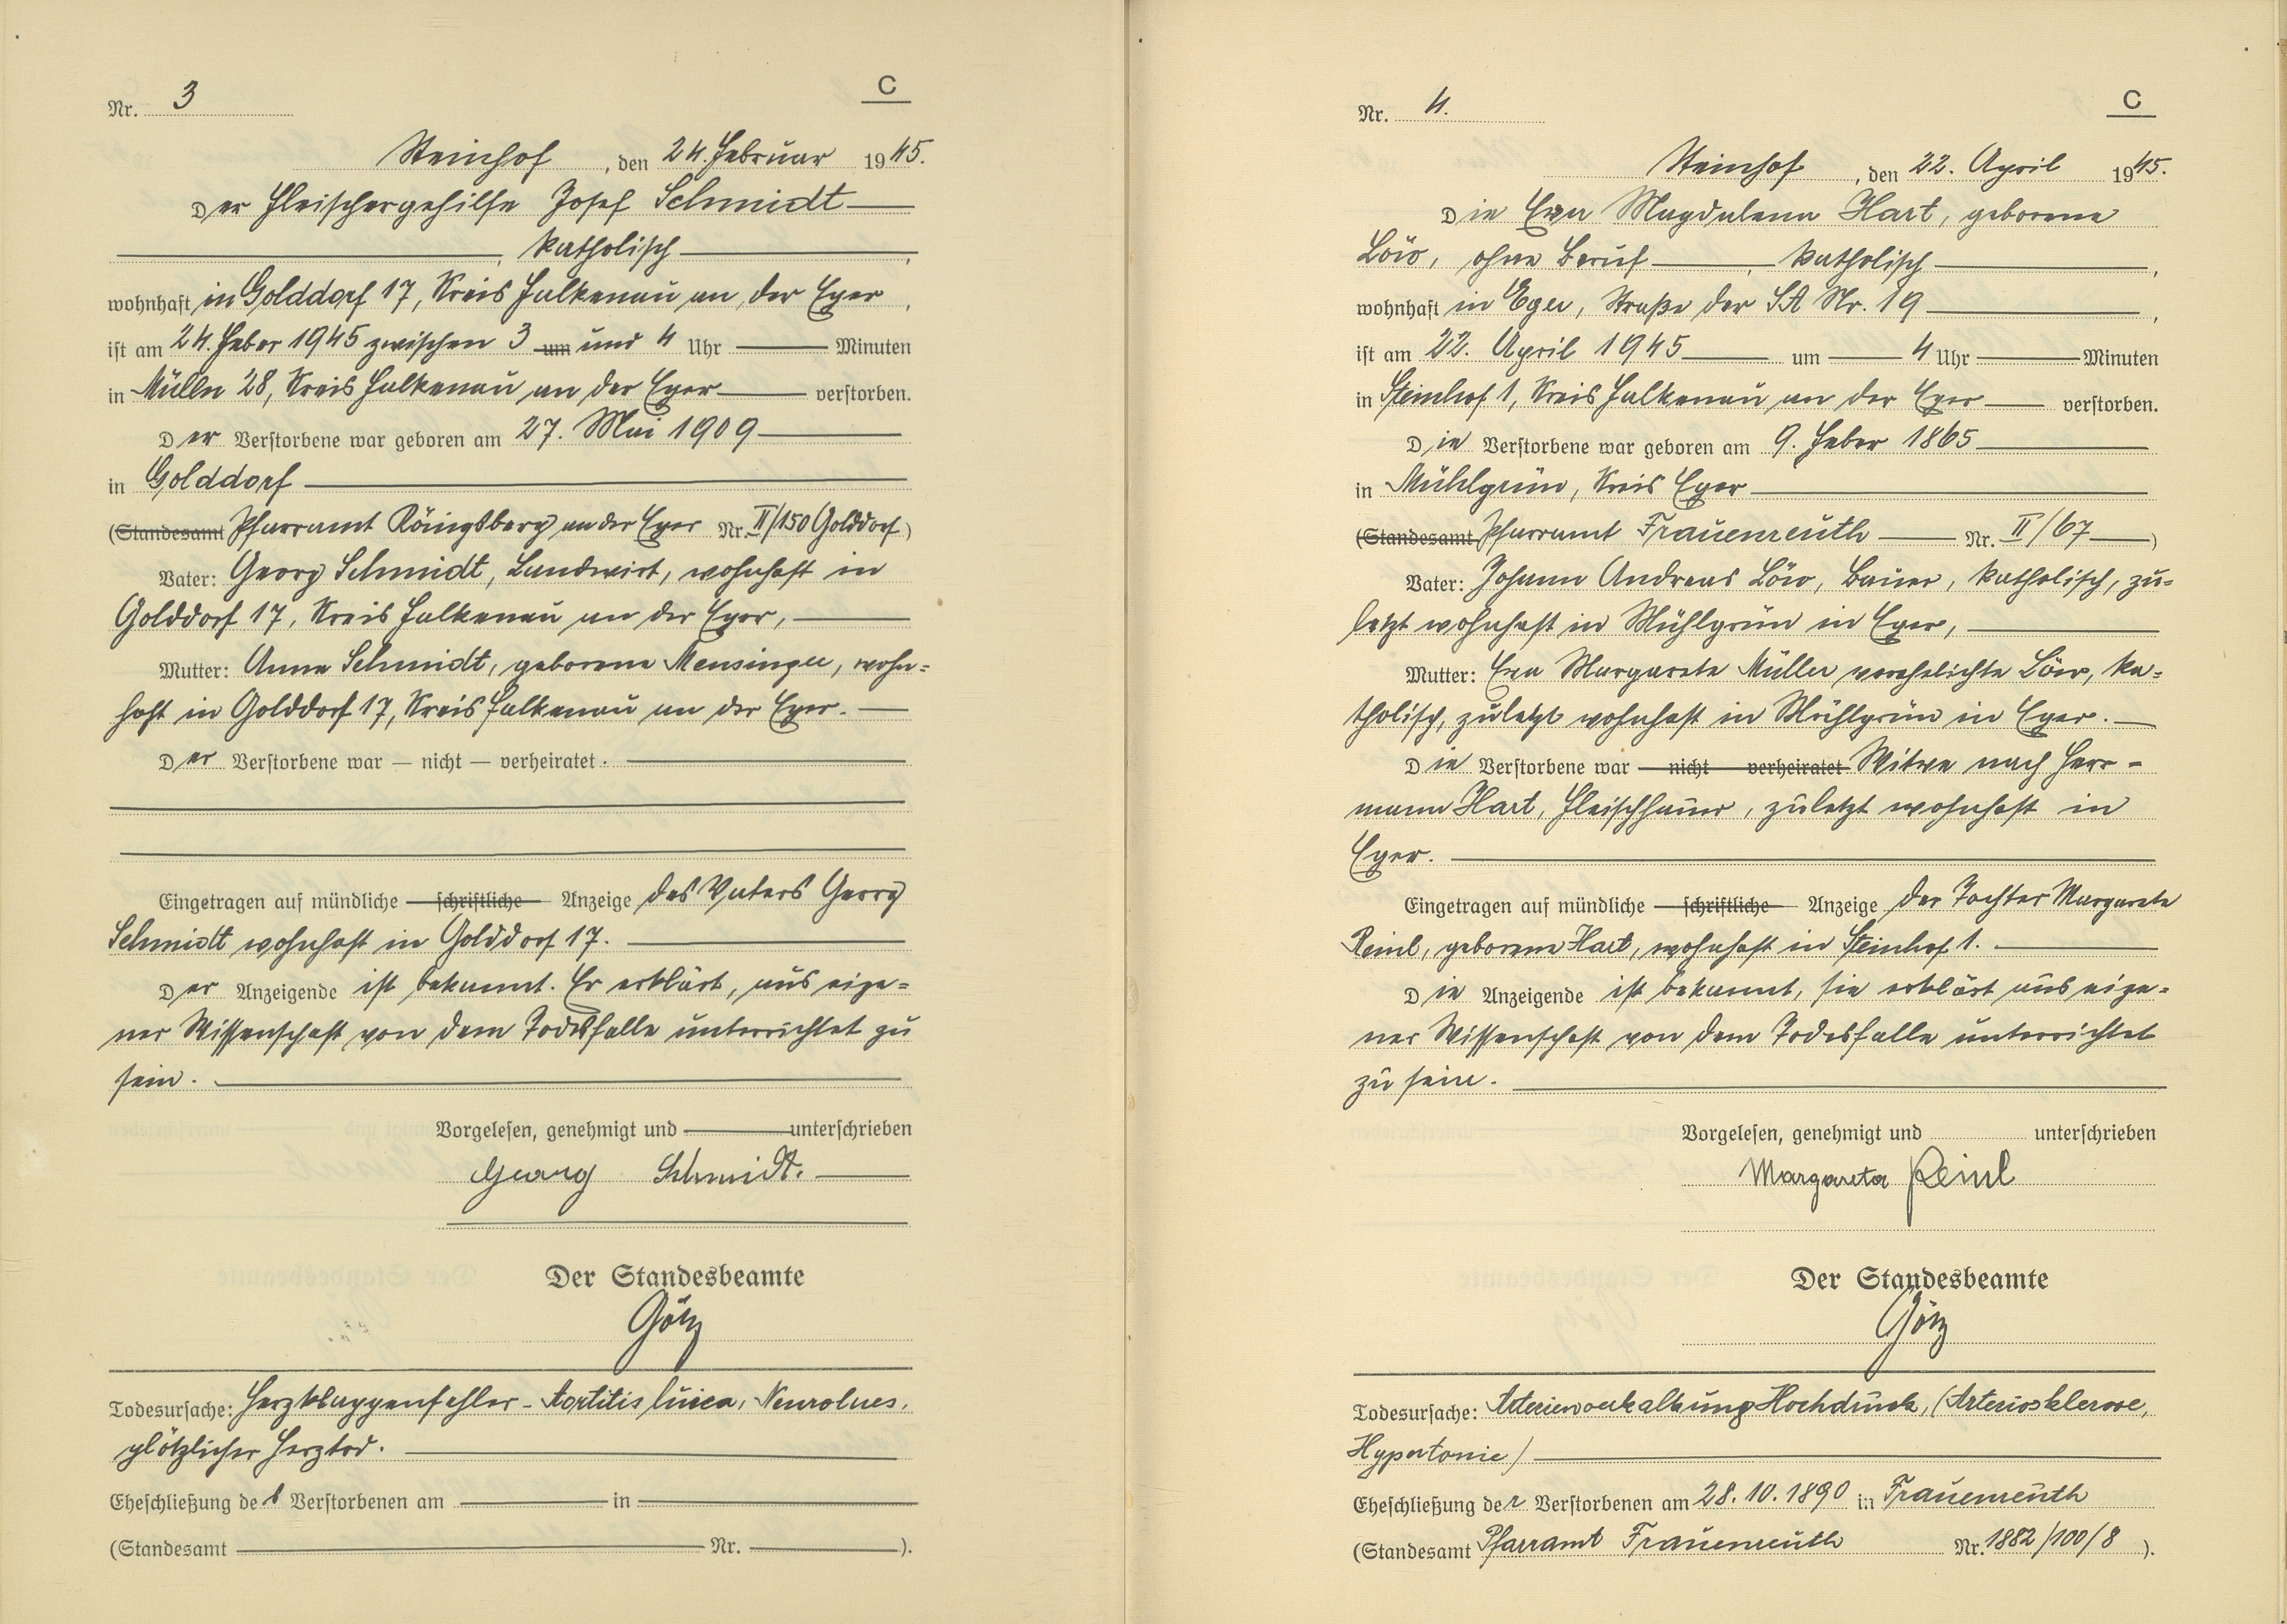 Nr. 3
C
Steinhof, den 24. Februar 1945.
Der Fleischergehilfe Josef Schmidt
, katholisch ,
wohnhaft in Golddorf 17, Kreis Falkenau an der Eger ,
ist am 24. Feber 1945 zwischen 3 um und 4 Uhr Minuten
in Mülln 28, Kreis Falkenau an der Eger verstorben.
Der Verstorbene war geboren am 27. Mai 1909
in Golddorf
(Standesamt Pfarramt Königsberg an der Eger Nr. II/150 Golddorf)
Vater: Georg Schmidt, Landwirt, wohnhaft in
Golddorf 17, Kreis Falkenau an der Eger,
Mutter: Anna Schmidt, geborene Mensinger, wohn=
haft in Golddorf 17, Kreis Falkenau an der Eger.
Der Verstorbene war — nicht — verheiratet.
Eingetragen auf mündliche schriftliche Anzeige des Vaters Georg
Schmidt wohnhaft in Golddorf 17.
Der Anzeigende ist bekannt. Er erklärt, aus eige=
ner Wissenschaft von dem Todesfalle unterrichtet zu
sein.
Vorgelesen, genehmigt und unterschrieben
Georg Schmidt.
Der Standesbeamte
Götz
Todesursache: Herzklappenfehler - Aortitis luica, Neurolues,
plötzlicher Herztod.
Eheschließung des Verstorbenen am in
(Standesamt Nr. ).
Nr. 4.
C
Steinhof, den 22. April 1945.
Die Eva Magdalena Hart, geborene
Löw, ohne Beruf , katholisch ,
wohnhaft in Eger, Straße der SA Nr. 19 ,
ist am 22. April 1945 um 4 Uhr Minuten
in Steinhof 1, Kreis Falkenau an der Eger verstorben.
Die Verstorbene war geboren am 9. Feber 1865
in Mühlgrün, Kreis Eger
(Standesamt Pfarramt Frauenreuth Nr. II/67 )
Vater: Johann Andreas Löw, Bauer, katholisch, zu=
letzt wohnhaft in Mühlgrün in Eger,
Mutter: Eva Margarete Müller verehelichte Löw, ka=
tholisch, zuletzt wohnhaft in Mühlgrün in Eger.
Die Verstorbene war nicht verheiratet Witwe nach Herr-
mann Hart, Fleischhauer, zuletzt wohnhaft in
Eger.
Eingetragen auf mündliche schriftliche Anzeige der Tochter Margarete
Reinl, geborene Hart, wohnhaft in Steinhof 1.
Die Anzeigende ist bekannt, sie erklärt aus eige=
ner Wissenschaft von dem Todesfalle unterrichtet
zu sein.
Vorgelesen, genehmigt und unterschrieben
Margareta Reinl
Der Standesbeamte
Götz
Todesursache: Arterienverkalkung Hochdruck, (Arteriosklerose,
Hypertonie)
Eheschließung der Verstorbenen am 28. 10. 1890 in Frauenreuth
(Standesamt Pfarramt Frauenreuth Nr. 1882/100/8 ).